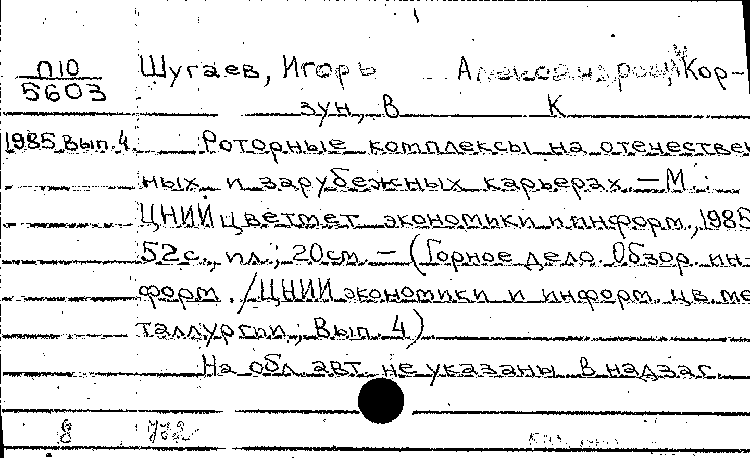 П10
5603
Шугаев, Игорь Александрович, Кор-
зун, В К
1985 Вып. 4. Роторные комплексы на отечествен
ных и зарубежных карьерах. — М.:
ЦНИИцветмет экономики и информ., 1985
52с., ил.; 20см. — (Горное дело. Обзор. ин-
форм. / ЦНИИ экономики и информ. цв. ме
таллургии; Вып. 4)
На обл. авт. не указаны. В надзаг.
8